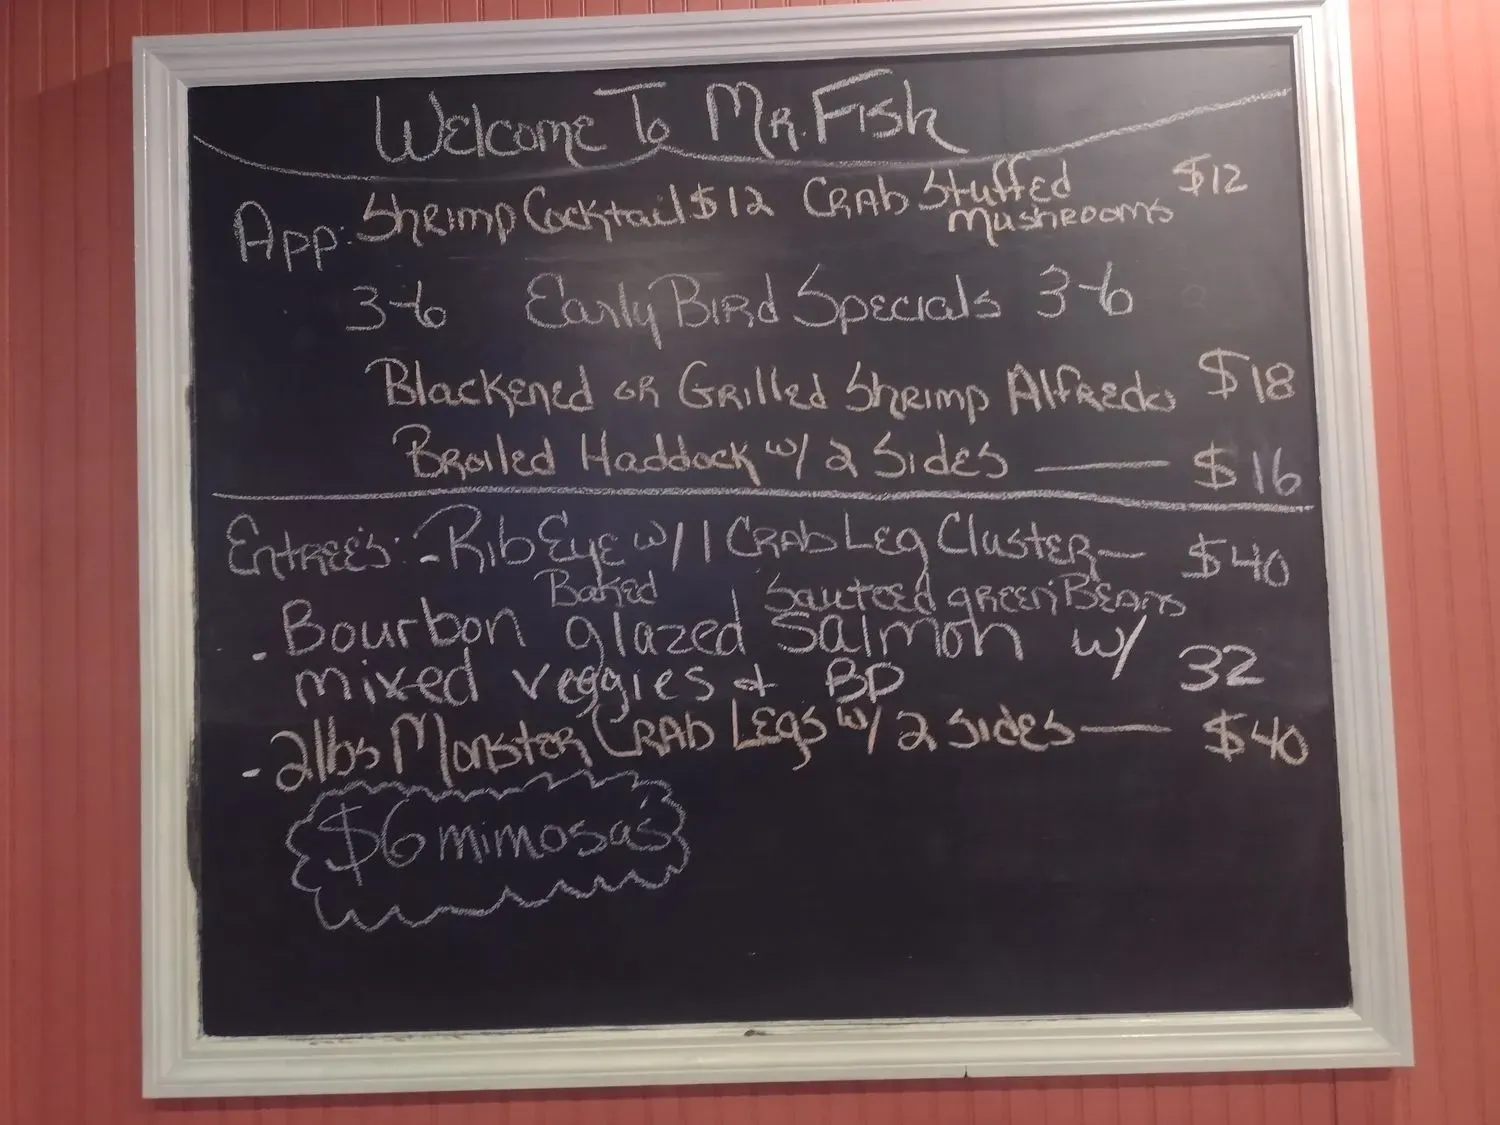 Welcome To Mr. Fish
App: Shrimp Cocktail $12 Crab Stuffed Mushrooms $12
3-6 Early Bird Specials 3-6
Blackened or Grilled Shrimp Alfredo $18
Broiled Haddock w/ 2 Sides — $16
Entreés: - Rib Eye w/ 1 Crab Leg Cluster — $40
Baked | Sauteed green Beans
. Bourbon glazed Salmon w/
mixed veggies & BP 32
- 2lbs Monster Crab Legs w/ 2 sides — $40
$6 mimosa's